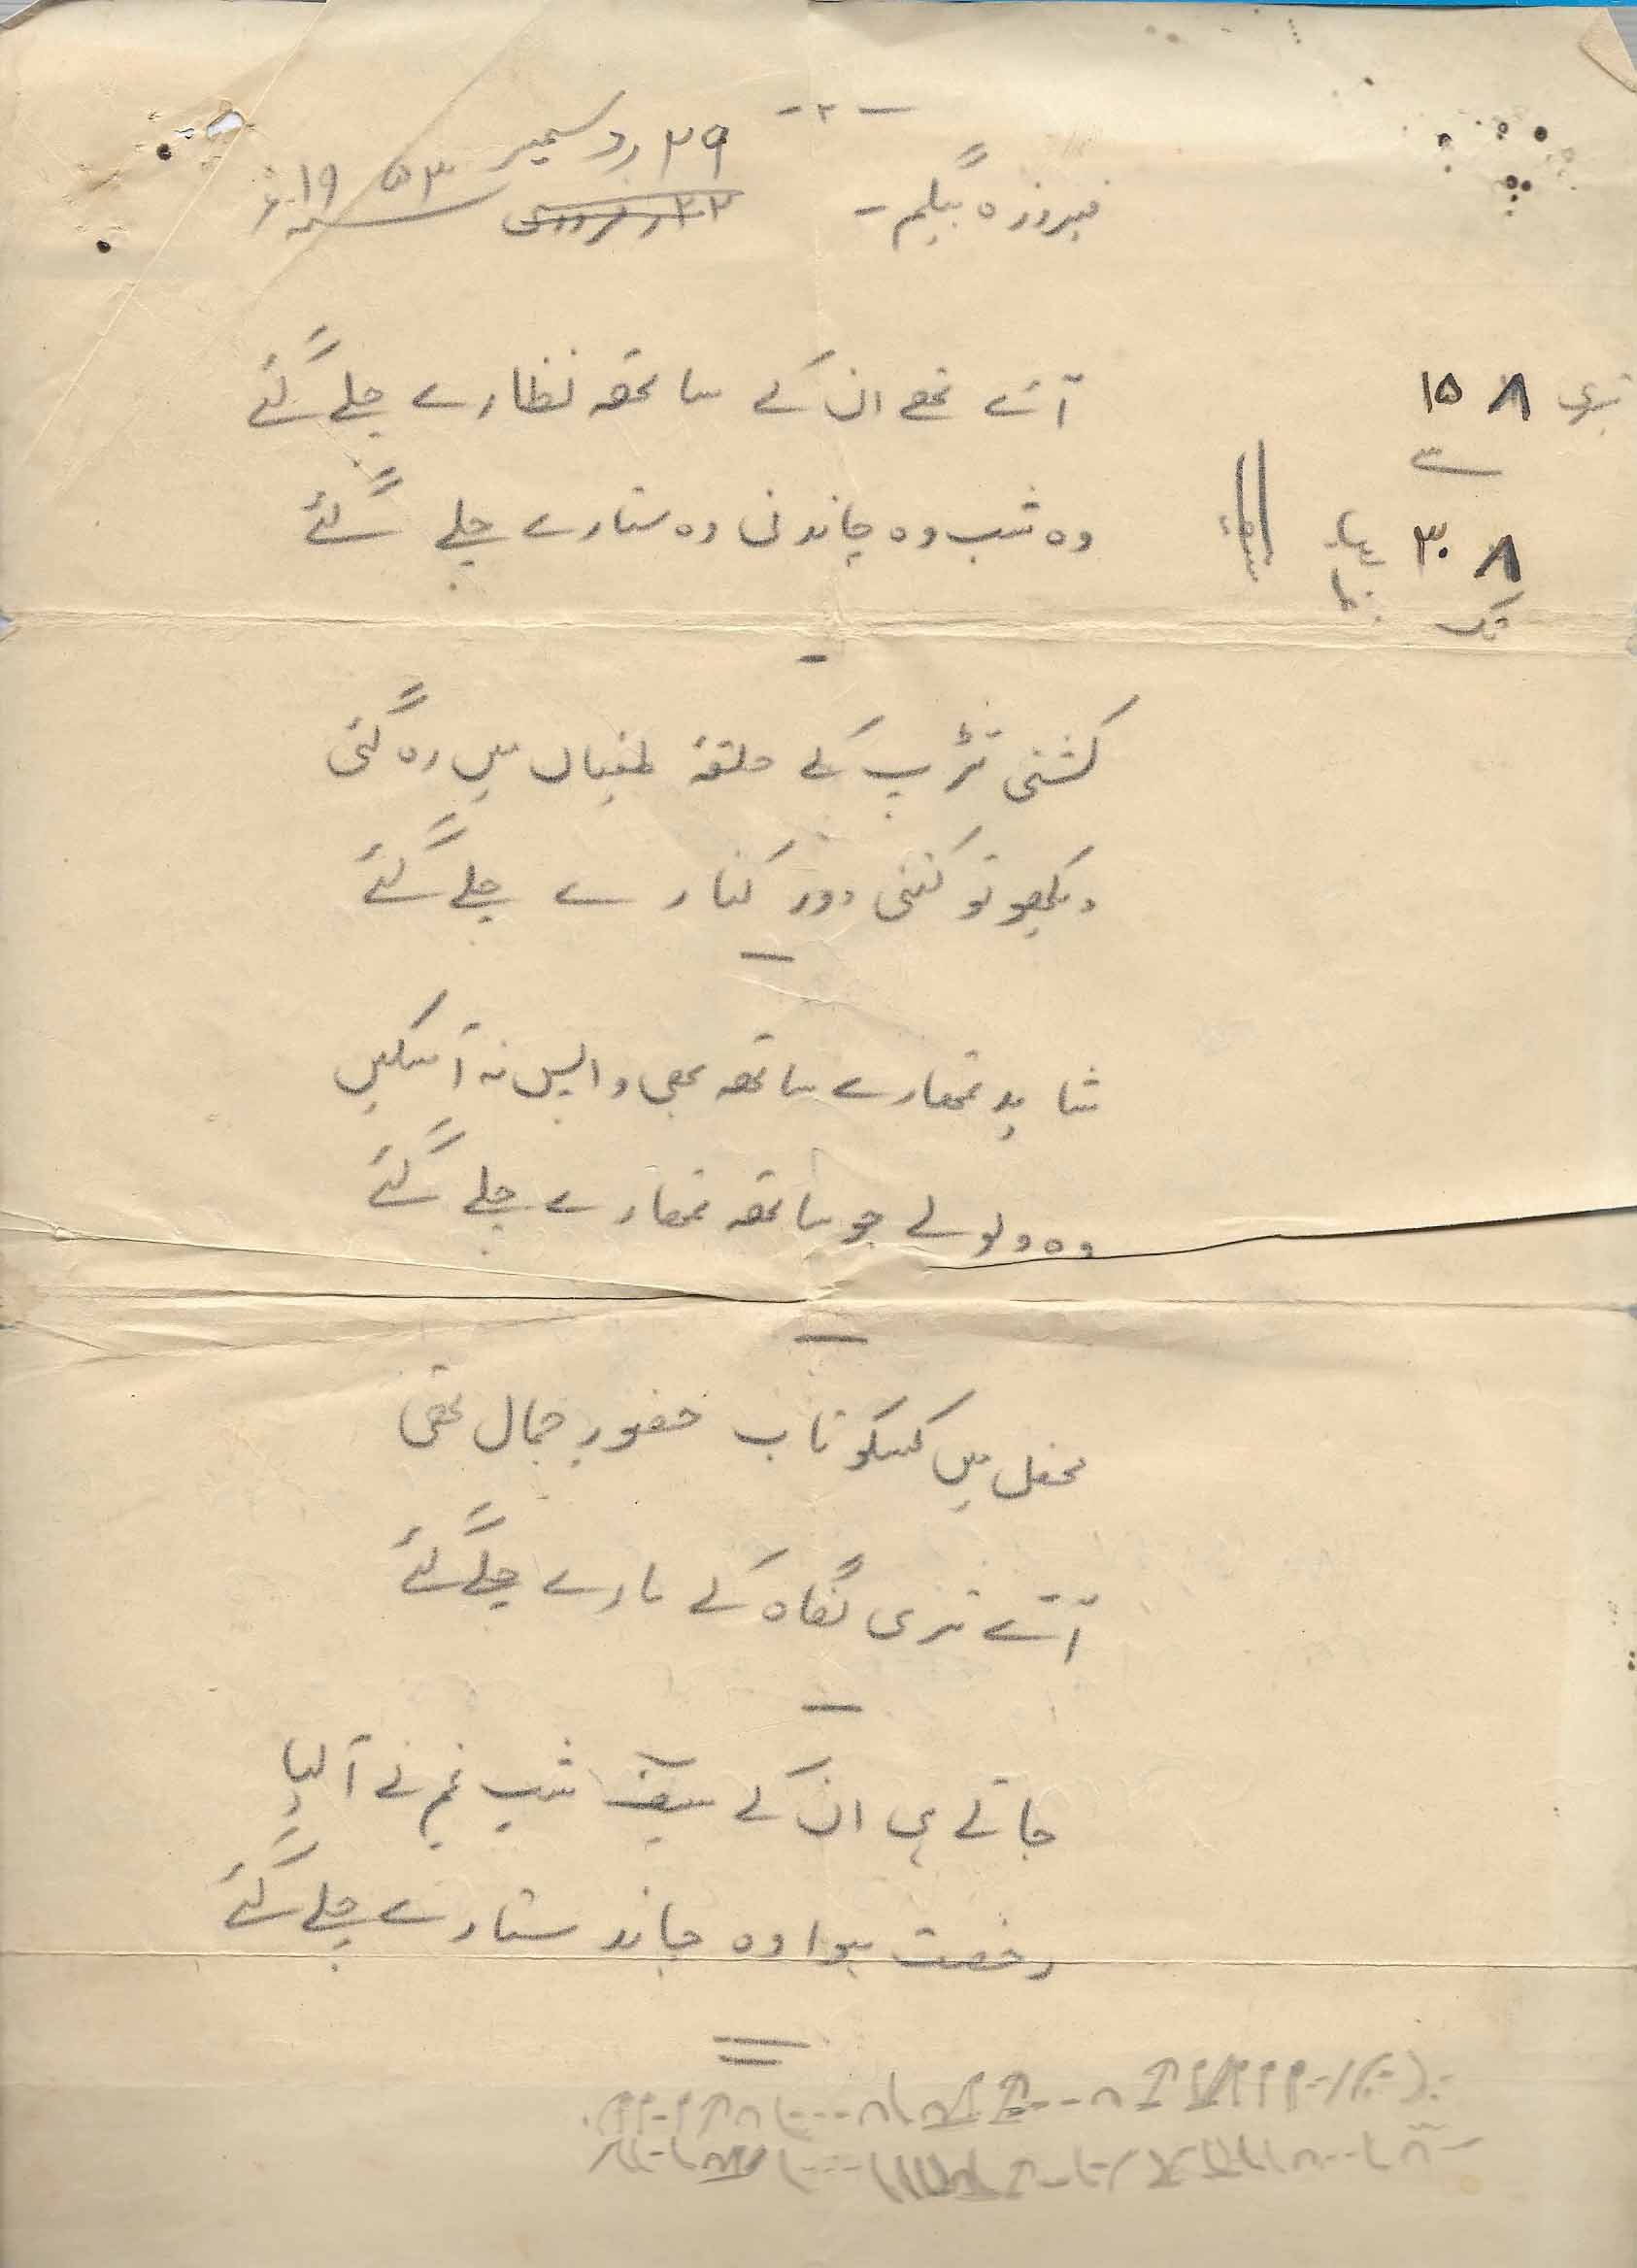 -۲-
فیروزہ بیگم - ۲۹ دسمبر ۱۹۵۳ء
۲۲ فروری
تیسری ۸ ۱۵
سے
۸ ۳۰
تک
آئے تھے ان کے ساتھ نظارے چلے گئے
وہ شب وہ چاندنی وہ ستارے چلے گئے
کشتی تڑپ کے حلقۂ طغیاں میں رہ گئی
دیکھو تو کتنی دور کنارے چلے گئے
شاید تمھارے ساتھ بھی واپس نہ آ سکیں
وہ ولولے جو ساتھ تمھارے چلے گئے
محفل میں کسکو تاب حضورِ جمال تھی
آئے تری نگاہ کے مارے چلے گئے
جاتے ہی ان کے سیف شبِ غم نے آ لیا
رخصت ہوا وہ چاند ستارے چلے گئے